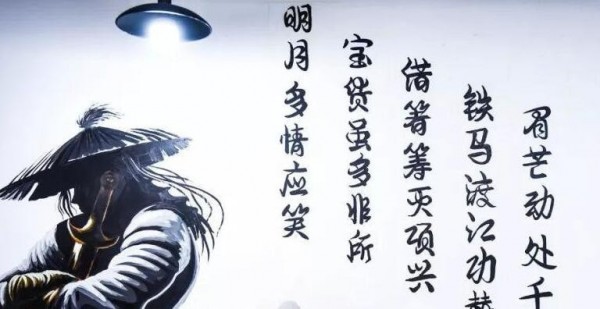 芒动处千
铁马渡江功
借箸筹灭项兴
宝货虽多非所
明月多情应笑